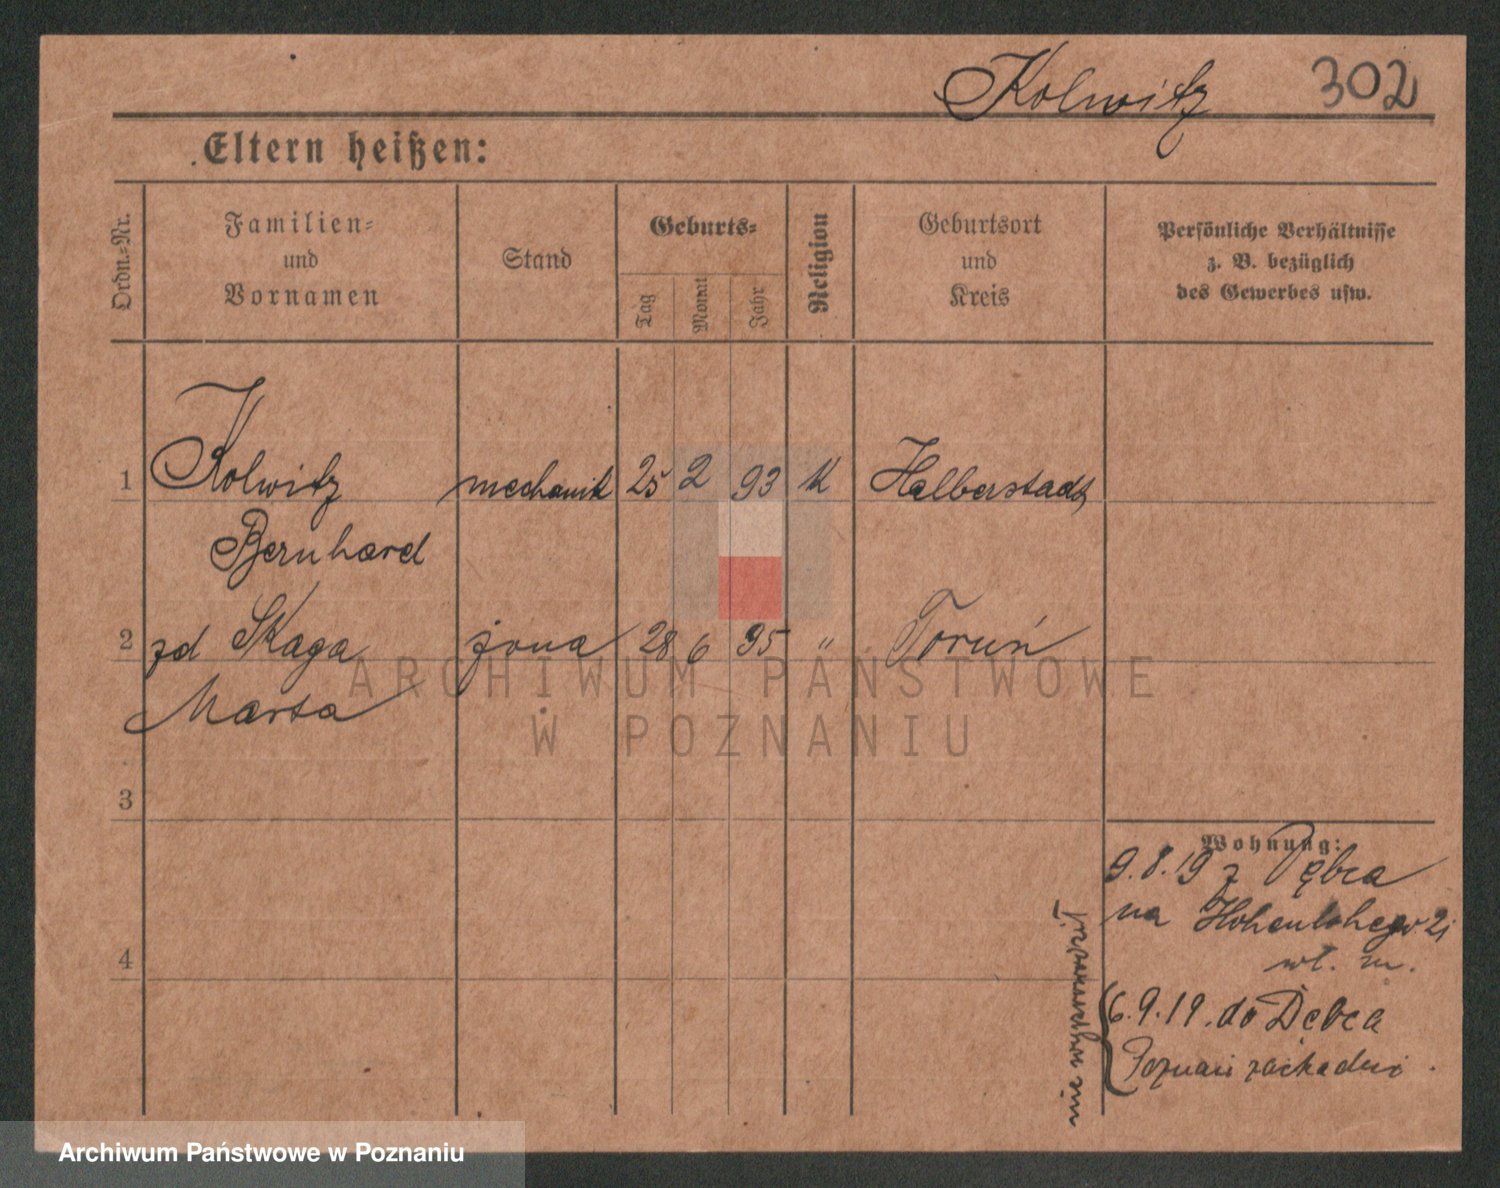 Kolwitz 302
Eltern heißen:
Ordn.-Nr.
Familien-
und
Vornamen
Stand
Geburts-
Tag
Monat
Jahr
Religion
Geburtsort
und
Kreis
Persönliche Verhältnisse
z. B. bezüglich
des Gewerbes usw.
1 Kolwitz mechanik 25 2 93 K Halberstadt
Bernhard
2 zd Skaga żona 28 6 95 " Toruń
Marta
3
4
Wohnung:
9.8.19 z Dębca
na Hohenlohego 21
wł. m.
6.9.19. do Dębca
Poznań zachodni.
nie wyprowadził
ARCHIWUM PAŃSTWOWE
W POZNANIU
Archiwum Państwowe w Poznaniu